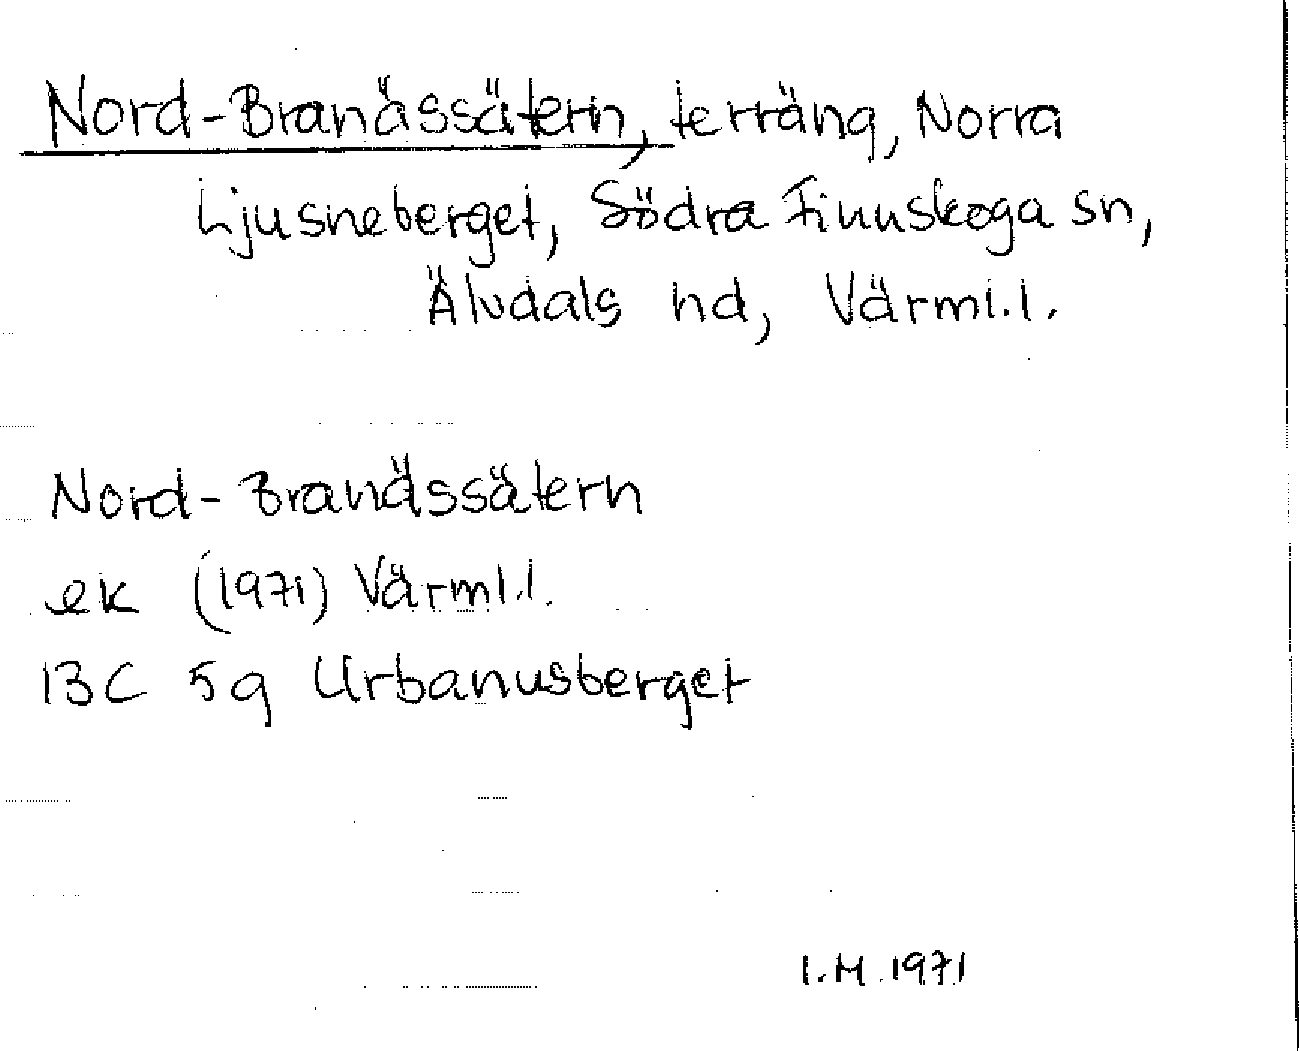 Nord-Branässätern, terräng, Norra
Ljusneberget, Södra Finnskoga sn,
Älvdals hd, Värml.l.
Nord-Branässätern
ek (1971) Värml.l.
13C 5g Urbanusberget
I.M. 1971